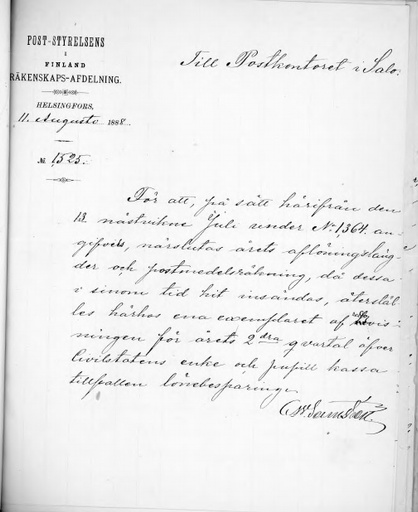 POST-STYRELSENS
I
FINLAND
RÄKENSKAPS-AFDELNING.
HELSINGFORS,
11 Augusti 1888.
№ 1525.
Till Postkontoret i Salo.
För att, på sätt härifrån den
13 nästvikne Juli under No 1364 an-
gifvets, närslutas årets aflöningsläng-
der och postmedelsräkning, då dessa
i sinom tid hit insändas, återstäl-
les härhos ena exemplaret af redovis-
ningen för årets 2dra qvartal öfver
Civilstatens enke och pupill kassa
tillfallen lönebesparing.